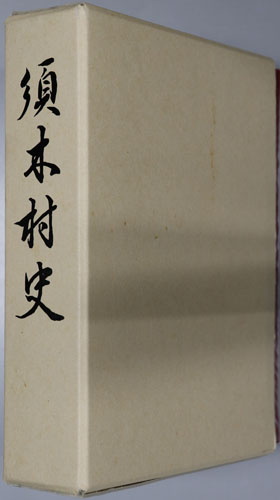 須木村史